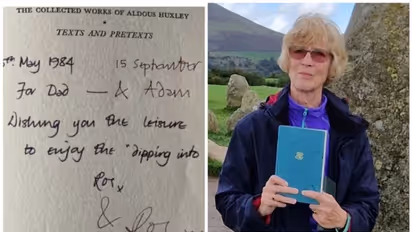 THE COLLECTED WORKS OF ALDOUS HUXLEY
TEXTS AND PRETEXTS
5th May 1984 15 September
For Dad — & Adam
Wishing you the leisure
to enjoy the "dipping into
Ros x
& Ros